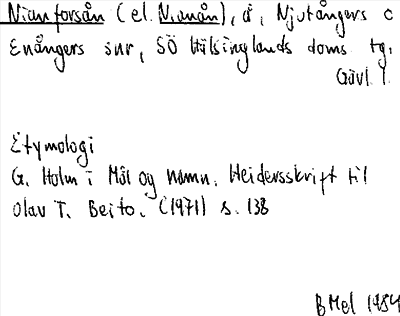 Nianforsån (el. Nianån), å, Njutångers o
Enångers snr, SÖ Hälsinglands doms. tg,
Gävl. l.
Etymologi
G. Holm i Mål og namn. Heidersskrift til
Olav T. Beito. (1971) s. 138
B Mel 1984